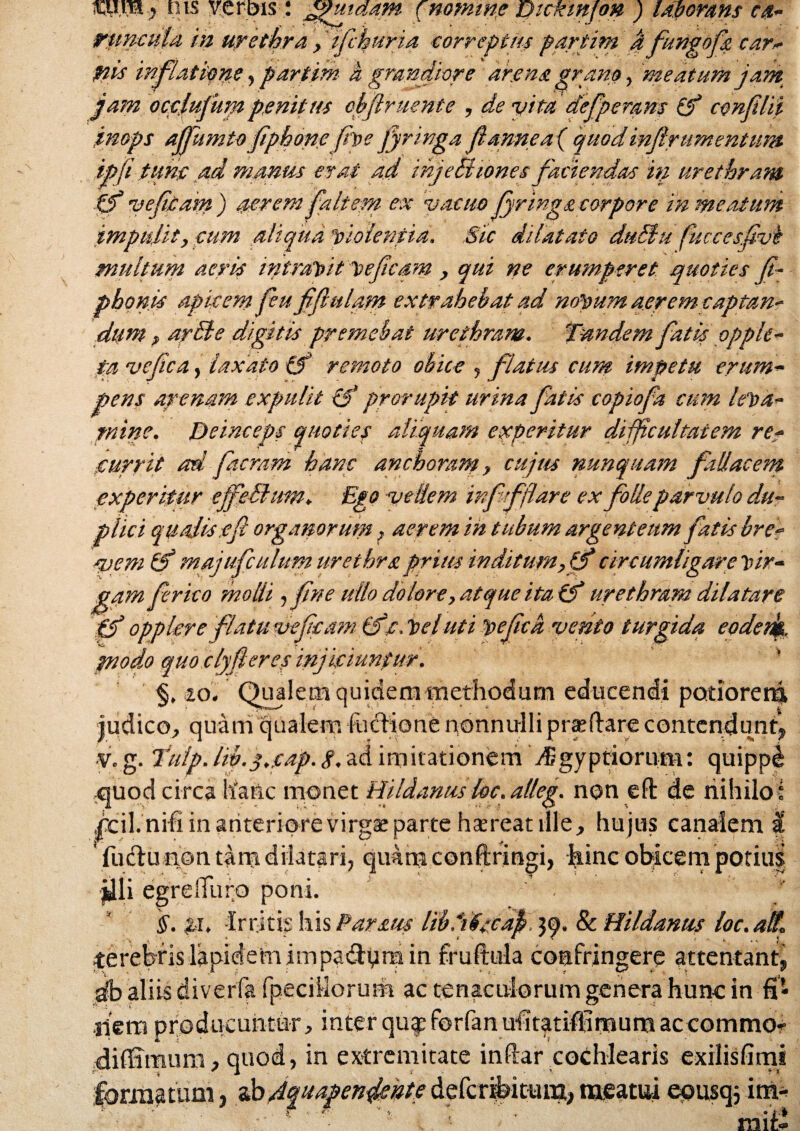 tum, his verbis: Quidam (nomine Dickinson) laborans ca-
runcula in urethra, ischuria correptus partim à fungosæ car-
nis inflatione, partim à grandiore arenæ grano, meatum jam
jam occlusum penitus obstruente, de vita desperans & consilii
inops assumto siphone sive syringa stannea (quod instrumentum
ipsi tunc ad manus erat ad injectiones faciendas in urethram
& vesicam) aerem saltem ex vacuo syringæ corpore in meatum
impulit, cum aliqua violentia. Sic dilatato ductu succesſivè
multum aeris intravit vesicam, qui ne erumperet quoties si-
phonis apicem seu fistulam extrahebat ad novum aerem captan-
dum, arcte digitis premebat urethram. Tandem satis opple-
ta vesica, laxato & remoto obice, flatus cum impetu erum-
pens arenam expulit & prorupit urina satis copiosa cum leva-
mine. Deinceps quoties aliquam experitur difficultatem re-
currit ad sacram hanc anchoram, cujus nunquam fallacem
experitur effectum. Ego vellem insufflare ex folle parvulo du-
plici qualis est organorum, aerem in tubum argenteum satis bre-
vem & majusculum urethræ prius inditum, & circumligare vir-
gam serico molli, sine ullo dolore, atque ita & urethram dilatare
& opplere flatu vesicam &c. vel uti vesicâ vento turgida eodem
modo quo clysteres injiciuntur.
§. 20. Qualem quidem methodum educendi potiorem
judico, quàm qualem suctione nonnulli præstare contendunt,
v. g. Tulp. lib. 3. cap. 8. ad imitationem Ægyptiorum: quippè
quod circa hanc monet Hildanus loc. alleg. non est de nihilo:
scil. nisi in anteriore virgæ parte hæreat ille, hujus canalem à
suctu non tàm dilatari, quàm constringi, hinc obicem potius
illi egressuro poni.
§. 21. Irritis his Paræus lib. 16. cap. 39. & Hildanus loc. all.
terebris lapidem impactum in frustula confringere attentant,
ab aliis diversa specillorum ac tenaculorum genera hunc in fi-
nem producuntur, inter quæ forsan usitatissimum ac commo-
dissimum, quod, in extremitate instar cochlearis exilissimi
formatum, ab Aquapendente describitum, meatui eousq; im-
mit-